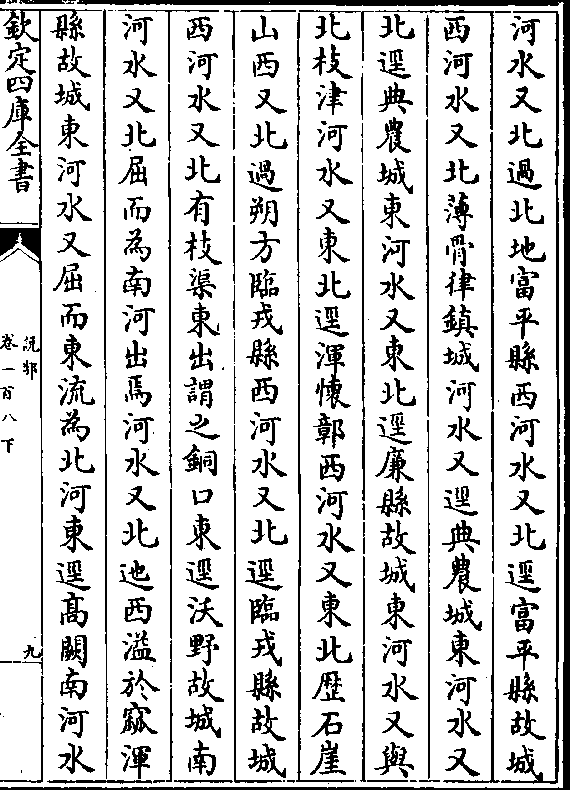 河水又北過北地富平縣西河水又北逕富平縣故城
西河水又北薄骨律鎮城河水又逕典農城東河水又
北逕典農城東河水又東北逕廉縣故城東河水又與
北枝津河水又東北逕渾懷鄣西河水又東北歴石崖
山西又北過朔方臨戎縣西河水又北逕臨戎縣故城
西河水又北有枝渠東出謂之銅口東逕沃野故城南
河水又北屈而為南河出焉河水又北迆西溢於窳渾
縣故城東河水又屈而東流為北河東逕髙闕南河水
欽定四庫全書
説郛
卷一百八下
九